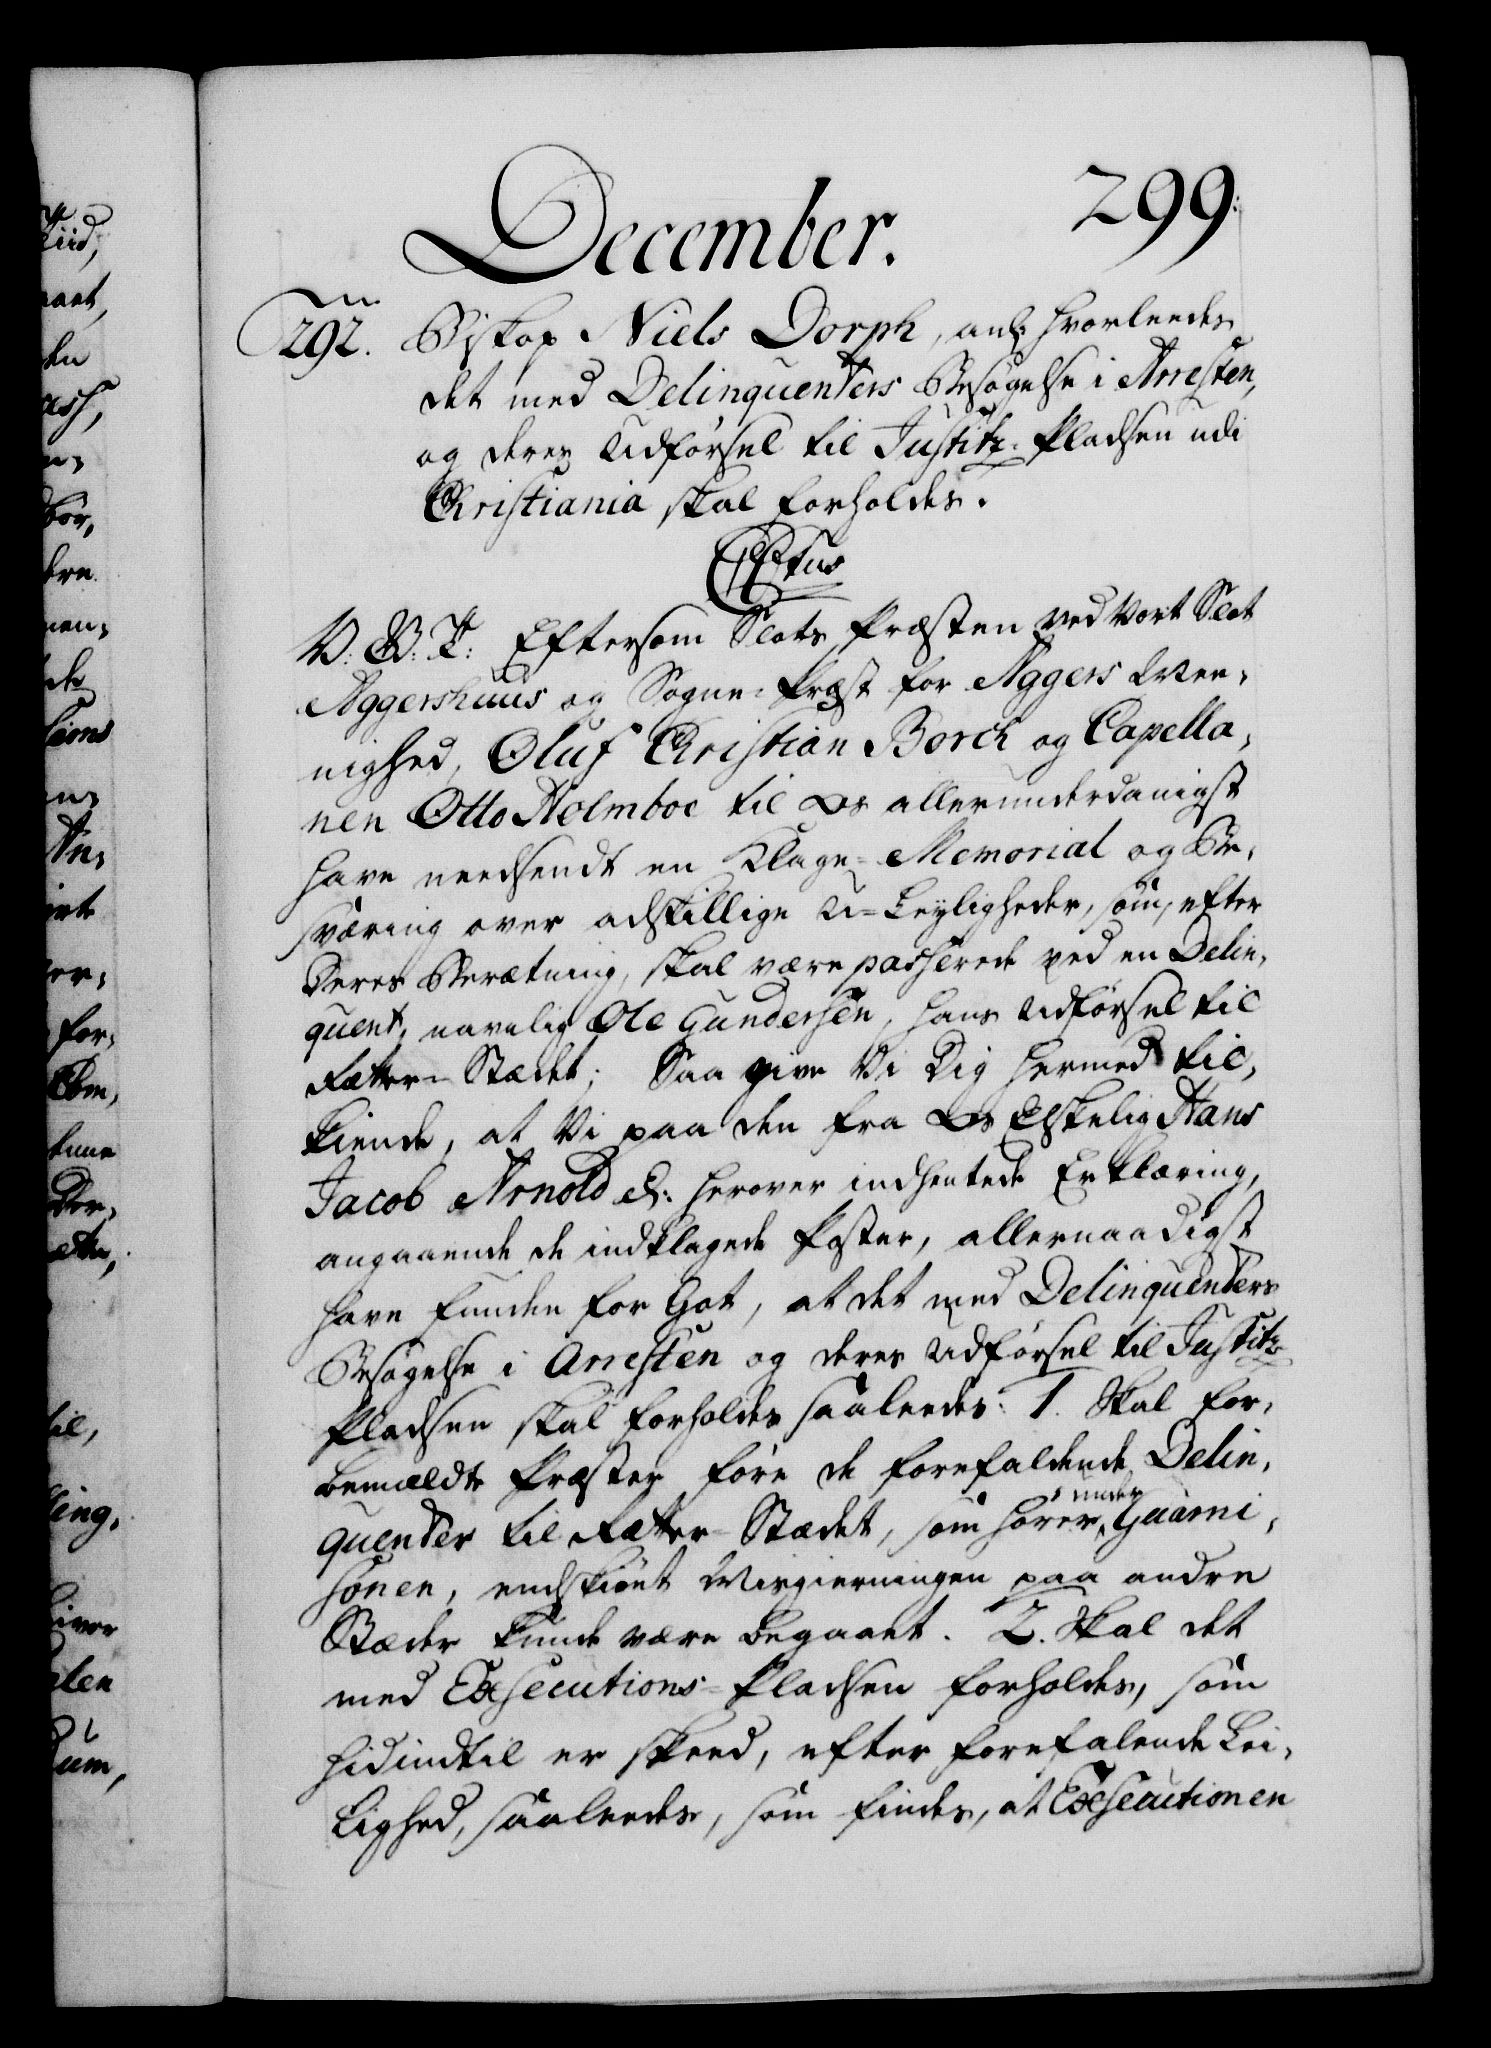 December.
299.
292. Biskop Niels Dorph, anl: hvorleedes
det med Delinquenters Besögelse i Arresten,
og deres Udförsel til Justitz-Pladsen udi
Christiania skal forholdes.
C6tus
V: G: T: Eftersom Slots Præsten ved Vort Slot
Aggershuus og Sogne-Præst for Aggers Mee-
nighed, Oluf Christian Borch og Capella-
nen Otto Holmboe til Os allerunderdanigst
have needsendt en Klage-Memorial og Be-
sværing over adskillige U-Leyligheder, som, efter
Deres Beretning, skal være passerede ved en Delin-
quent, navnlig Ole Gundersen, hans Udförsel til
Retter-Stædet; Saa give Vi Dig hermed til-
kiende, at Vi paa den fra Os Elskelig Hans
Jacob Arnold &: herover indhentede Erklæring,
angaaende de indklagede Poster, allernaadigst
have funden for Got, at det med Delinquenters
Besögelse i Arresten og deres Udförsel til Justitz
Pladsen skal forholdes saaleedes: 1. Skal for-
bemældte Præster före de forefaldende Delin-
quenter til Retter-Stædet, som hörer under Guarni-
sonen, endskiönt Misgierningen paa andre
Stæder kunde være begaaet. 2. Skal det
med Executions-Pladsen forholdes, som
hidindtil er skeed, efter forefalende Lei-
lighed, saaleedes, som findes, at Executionen